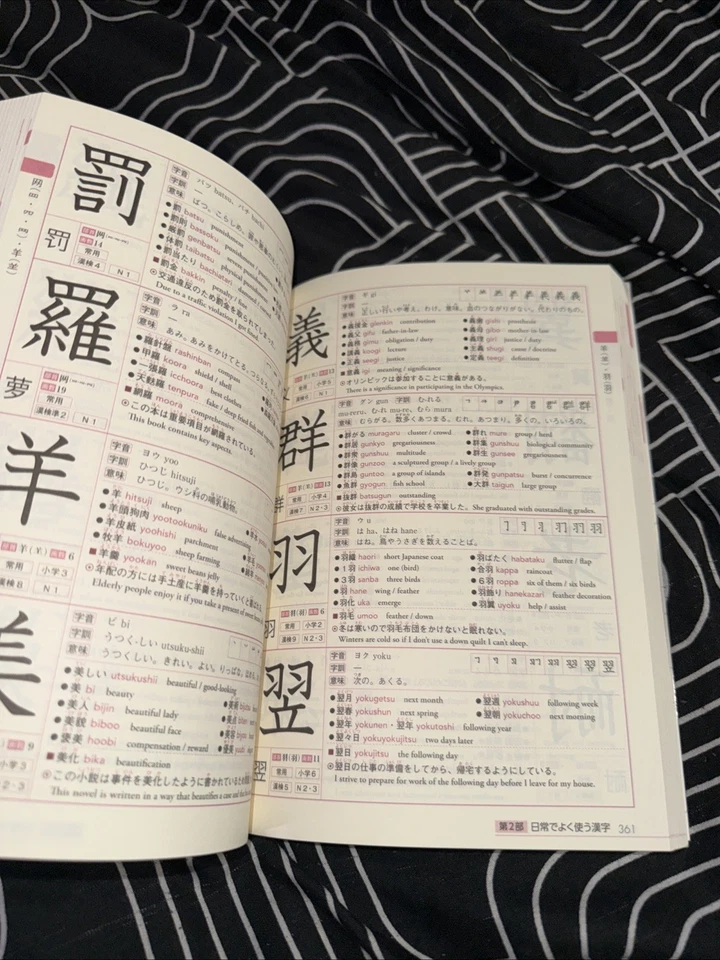 罰
罰
部首 网
画数 14
常用
漢検4 N1
字音 バツ batsu, バチ bachi
字訓 —
意味 ばつ。こらしめ。
●罰 batsu punishment
●罰則 bassoku
●厳罰 genbatsu
●体罰 taibatsu physical
●罰当たり bachiatari
■罰金 bakkin penalty / fine
◎交通違反のため罰金を取られてしまった。
Due to a traffic violation I got fined.
羅
部首 网
画数 19
常用
漢検準2 N1
字音 ラ ra
字訓 —
意味
●羅針盤 rashinban compass
●甲羅 koora shell
●一張羅 icchoora best clothes
●天麩羅 tenpura
■網羅 moora comprehensive
◎この本は重要項目が網羅されている。
This book contains key aspects.
羊
部首 羊
画数 6
小学3
N1
字音 ヨウ yoo
字訓 ひつじ hitsuji
意味 ひつじ。ウシ科の哺乳動物。
●羊 hitsuji sheep
●羊頭狗肉 yootookuniku
●羊皮紙 yoohishi parchment
●牧羊 bokuyoo sheep farming
■羊羹 yookan sweet beans jelly
◎年配の方には手土産に羊羹を持っていくと喜ばれる。
Elderly people enjoy it if you take a present of sweet beans
美
小学3
N2・3
字音 ビ bi
字訓 うつく-しい utsuku-shii
意味 うつくしい。きれい。よい。りっぱな。
●美しい utsukushii beautiful / good-looking
●美 bi beauty
●美人 bijin beautiful lady
●美貌 biboo beautiful face
●褒美 hoobi compensation / reward
■美化 bika beautification
◎この小説は事件を美化したように書かれている
This novel is written in a way that beautifies a case
義
画数 13
小学5
N1
字音 ギ gi
字訓 —
意味 正しい行いや考え。わけ、意味。血のつながりがない。代わりのもの。
●義捐金 gienkin contribution
●義歯 gishi prosthesis
●義父 gifu father-in-law
●義母 gibo mother-in-law
●義務 gimu obligation / duty
●義理 giri justice / duty
●講義 koogi lecture
●主義 shugi cause / doctrine
●正義 seegi justice
●定義 teegi definition
■意義 igi meaning / significance
◎オリンピックは参加することに意義がある。
There is a significance in participating in the Olympics.
群
画数 13
常用 小学4
漢検7 N2・3
字音 グン gun 字訓 む-れる
mu-reru, む-れ mu-re, むら mura
意味 むらがる。数多くあつまる。むれ。あつまり。多くの。いろいろの。
●群がる muragaru cluster / crowd
●群れ mure group / herd
●群居 gunkyo gregariousness
●群集 gunshuu biological community
●群衆 gunshuu multitude
●群生 gunsee gregariousness
●群像 gunzoo a sculptured group / a lively group
●群島 guntoo a group of islands
●群発 gunpatsu burst / concurrence
●魚群 gyogun fish school
●大群 taigun large group
■抜群 batsugun outstanding
◎彼女は抜群の成績で学校を卒業した。 She graduated with outstanding grades.
羽
羽
部首 羽
画数 6
常用 小学2
漢検9 N2・3
字音 ウ u
字訓 は ha、はね hane
意味 はね。鳥やうさぎを数えることば。
●羽織 haori short Japanese coat
●羽ばたく habataku flutter / flap
●1羽 ichiwa one (bird)
●合羽 kappa raincoat
●3羽 sanba three birds
●6羽 roppa six of them / six birds
●羽 hane wing / feather
●羽飾り hanekazari feather decoration
●羽化 uka emerge
●羽翼 uyoku help / assist
■羽毛 umoo feather / down
◎冬は寒いので羽毛布団をかけないと眠れない。
Winters are cold so if I don't use a down quilt I can't sleep.
翌
翌
部首 羽
画数 11
常用 小学6
漢検5 N2・3
字音 ヨク yoku
字訓 —
意味 次の。あくる。
●翌月 yokugetsu next month
●翌週 yokushuu following week
●翌春 yokushun next spring
●翌朝 yokuchoo next morning
●翌年 yokunen・翌年 yokutoshi following year
●翌々日 yokuyokujitsu two days later
■翌日 yokujitsu the following day
◎翌日の仕事の準備をしてから、帰宅するようにしている。
I strive to prepare for work of the following day before I leave for my house.
第2部 日常でよく使う漢字 361